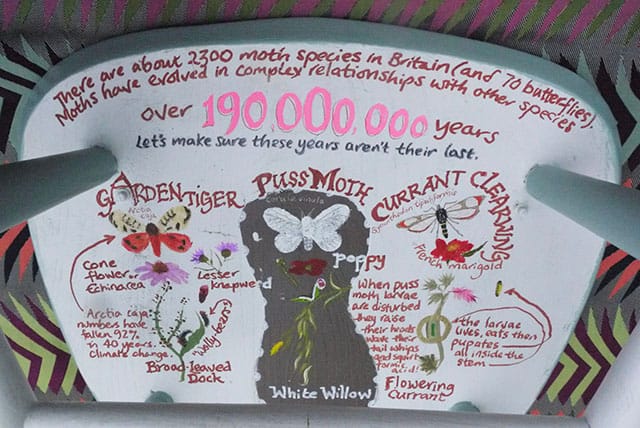 There are about 2300 moth species in Britain (and 70 butterflies).
Moths have evolved in complex relationships with other species
over 190 000,000 years
Let's make sure these years aren't their last.
GARDEN TIGER
Arctia caja
Cone flower or Echinacea
Lesser Knapweed
Arctia caja: numbers have fallen 92% in 40 years. Climate change.
"Woolly bears"
Broad-leaved Dock
PUSS MOTH
Cerura vinula
Poppy
When puss moth larvae are disturbed they raise their heads wave their tail whips and squirt formic acid!
White Willow
CURRANT CLEARWING
French marigold
the larvae lives, eats then pupates all inside the stem
Flowering Currant